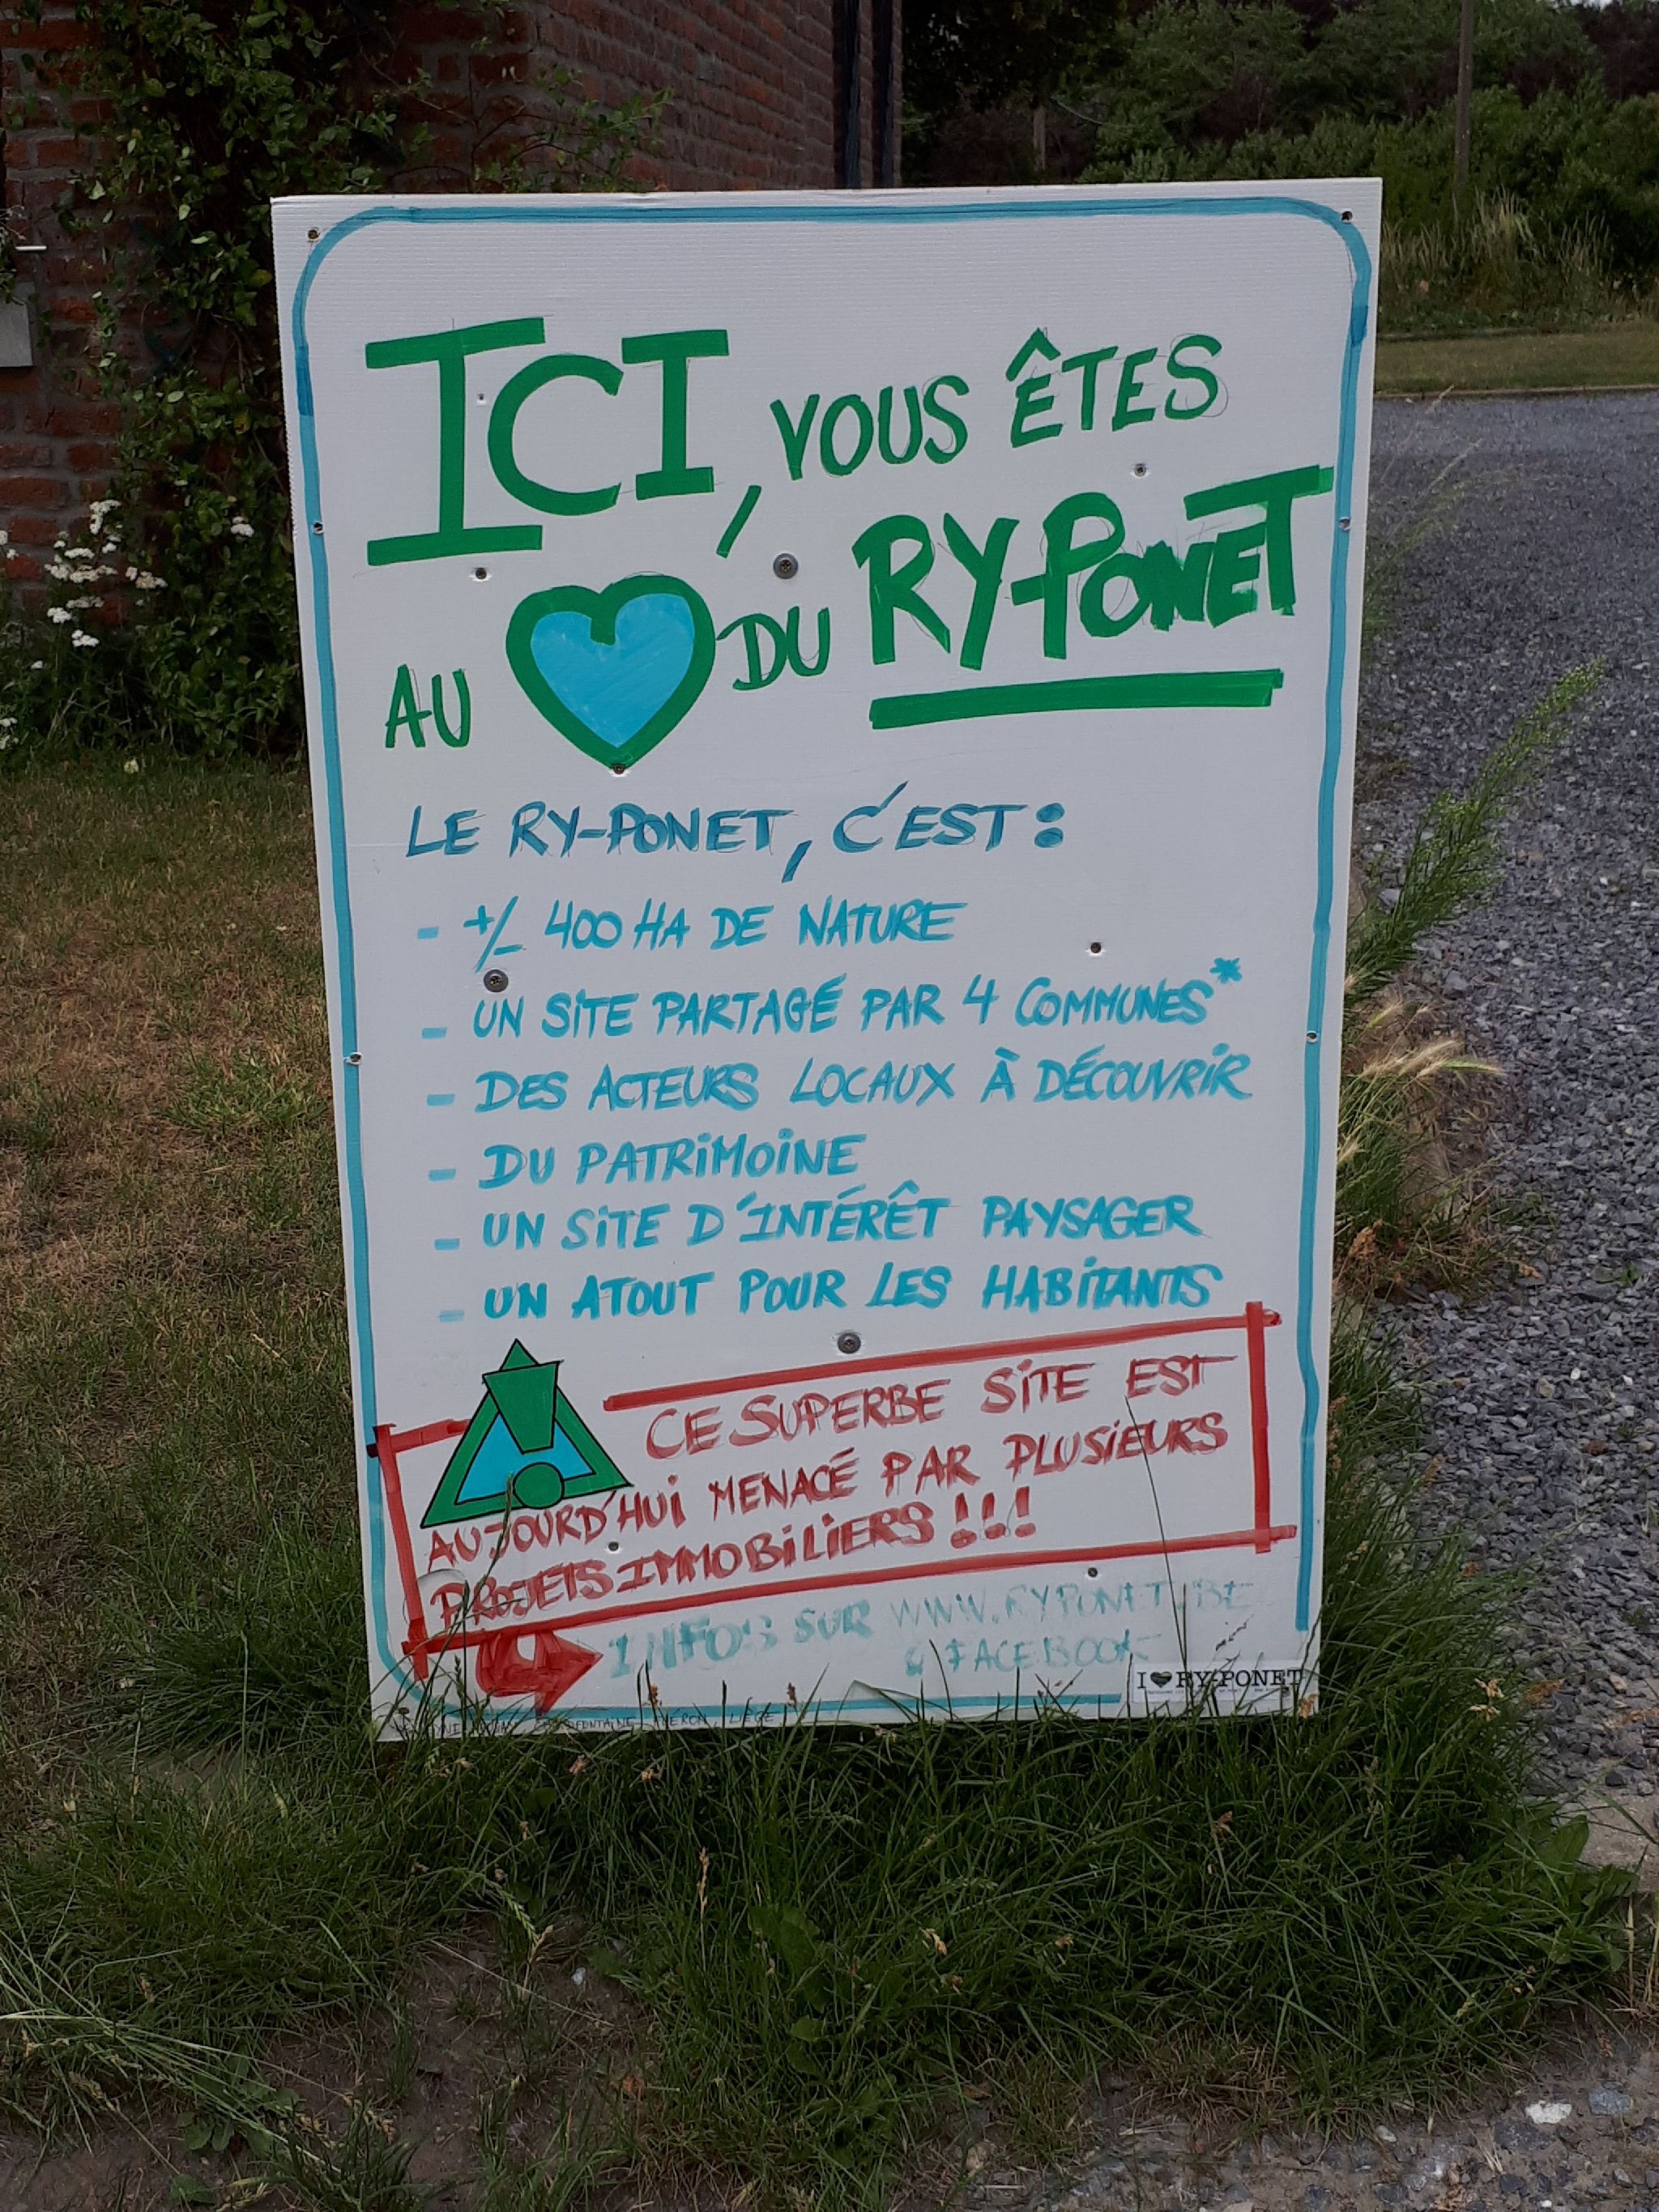 ICI, VOUS ÊTES
AU DU RY-PONET
LE RY-PONET, C'EST :
- +/- 400 HA DE NATURE
- UN SITE PARTAGÉ PAR 4 COMMUNES*
- DES ACTEURS LOCAUX À DÉCOUVRIR
- DU PATRIMOINE
- UN SITE D'INTÉRÊT PAYSAGER
- UN ATOUT POUR LES HABITANTS
CE SUPERBE SITE EST
AUJOURD'HUI MENACÉ PAR PLUSIEURS
PROJETS IMMOBILIERS !!!
INFOS SUR WWW.RYPONET.BE
& FACEBOOK
I RY-PONET
LIÈGE